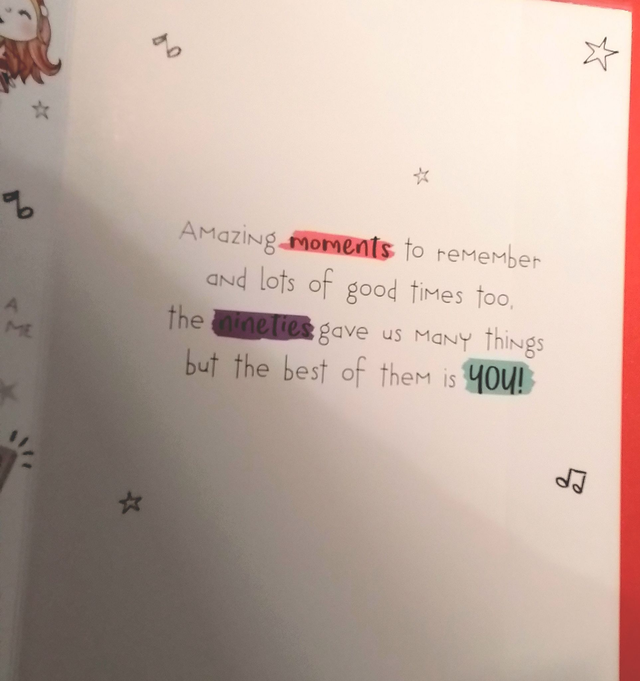 Amazing moments to remember
and lots of good times too,
the nineties gave us many things
but the best of them is YOU!
A
ME